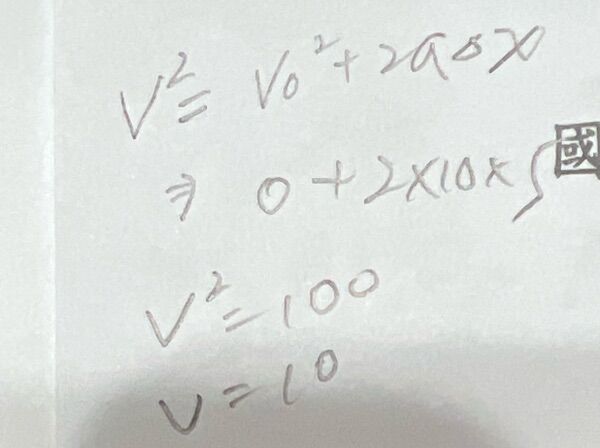 V² = V₀² + 2aΔx
⇒ 0 + 2×10×5
國
V² = 100
V = 10